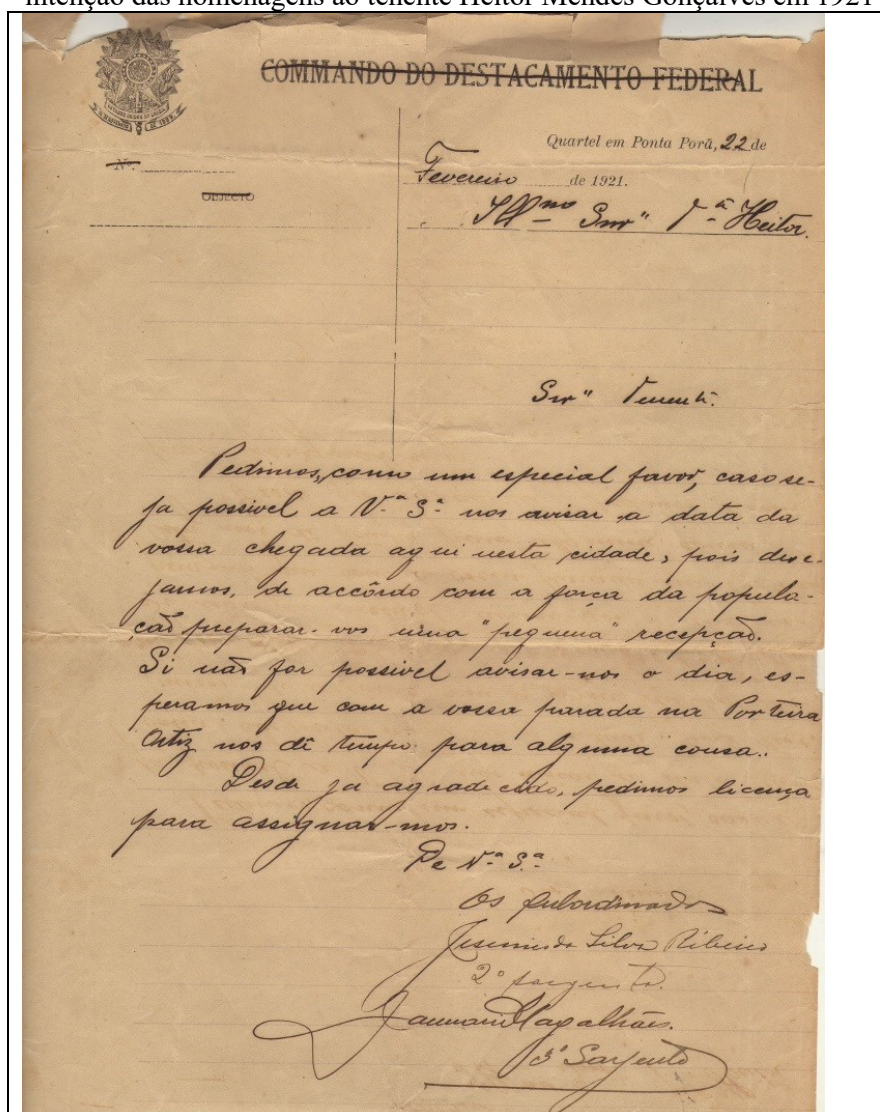 intenção das homenagens ao tenente Heitor Mendes Gonçalves em 1921
COMMANDO DO DESTACAMENTO FEDERAL
Quartel em Ponta Porã, 22 de
Nº.
Fevereiro de 1921.
OBJECTO
Illmo Snrº Tte Heitor.
Snrº Tenente.
Pedimos, como um especial favor, caso se-
ja possivel a V.ª S.ª nos avisar a data da
vossa chegada aqui nesta cidade, pois dese-
jamos, de accôrdo com a força da popula-
ção preparar-vos uma "pequena" recepção.
Si não for possivel avisar-nos o dia, es-
peramos que com a vossa parada na Porteira
Ortiz nos dê tempo para alguma cousa..
Desde ja agradecido, pedimos licença
para assignar-mos.
De V.ª S.ª
Os subordinados
da Silva Ribeiro
2º sargento.
Magalhães.
3º Sargento